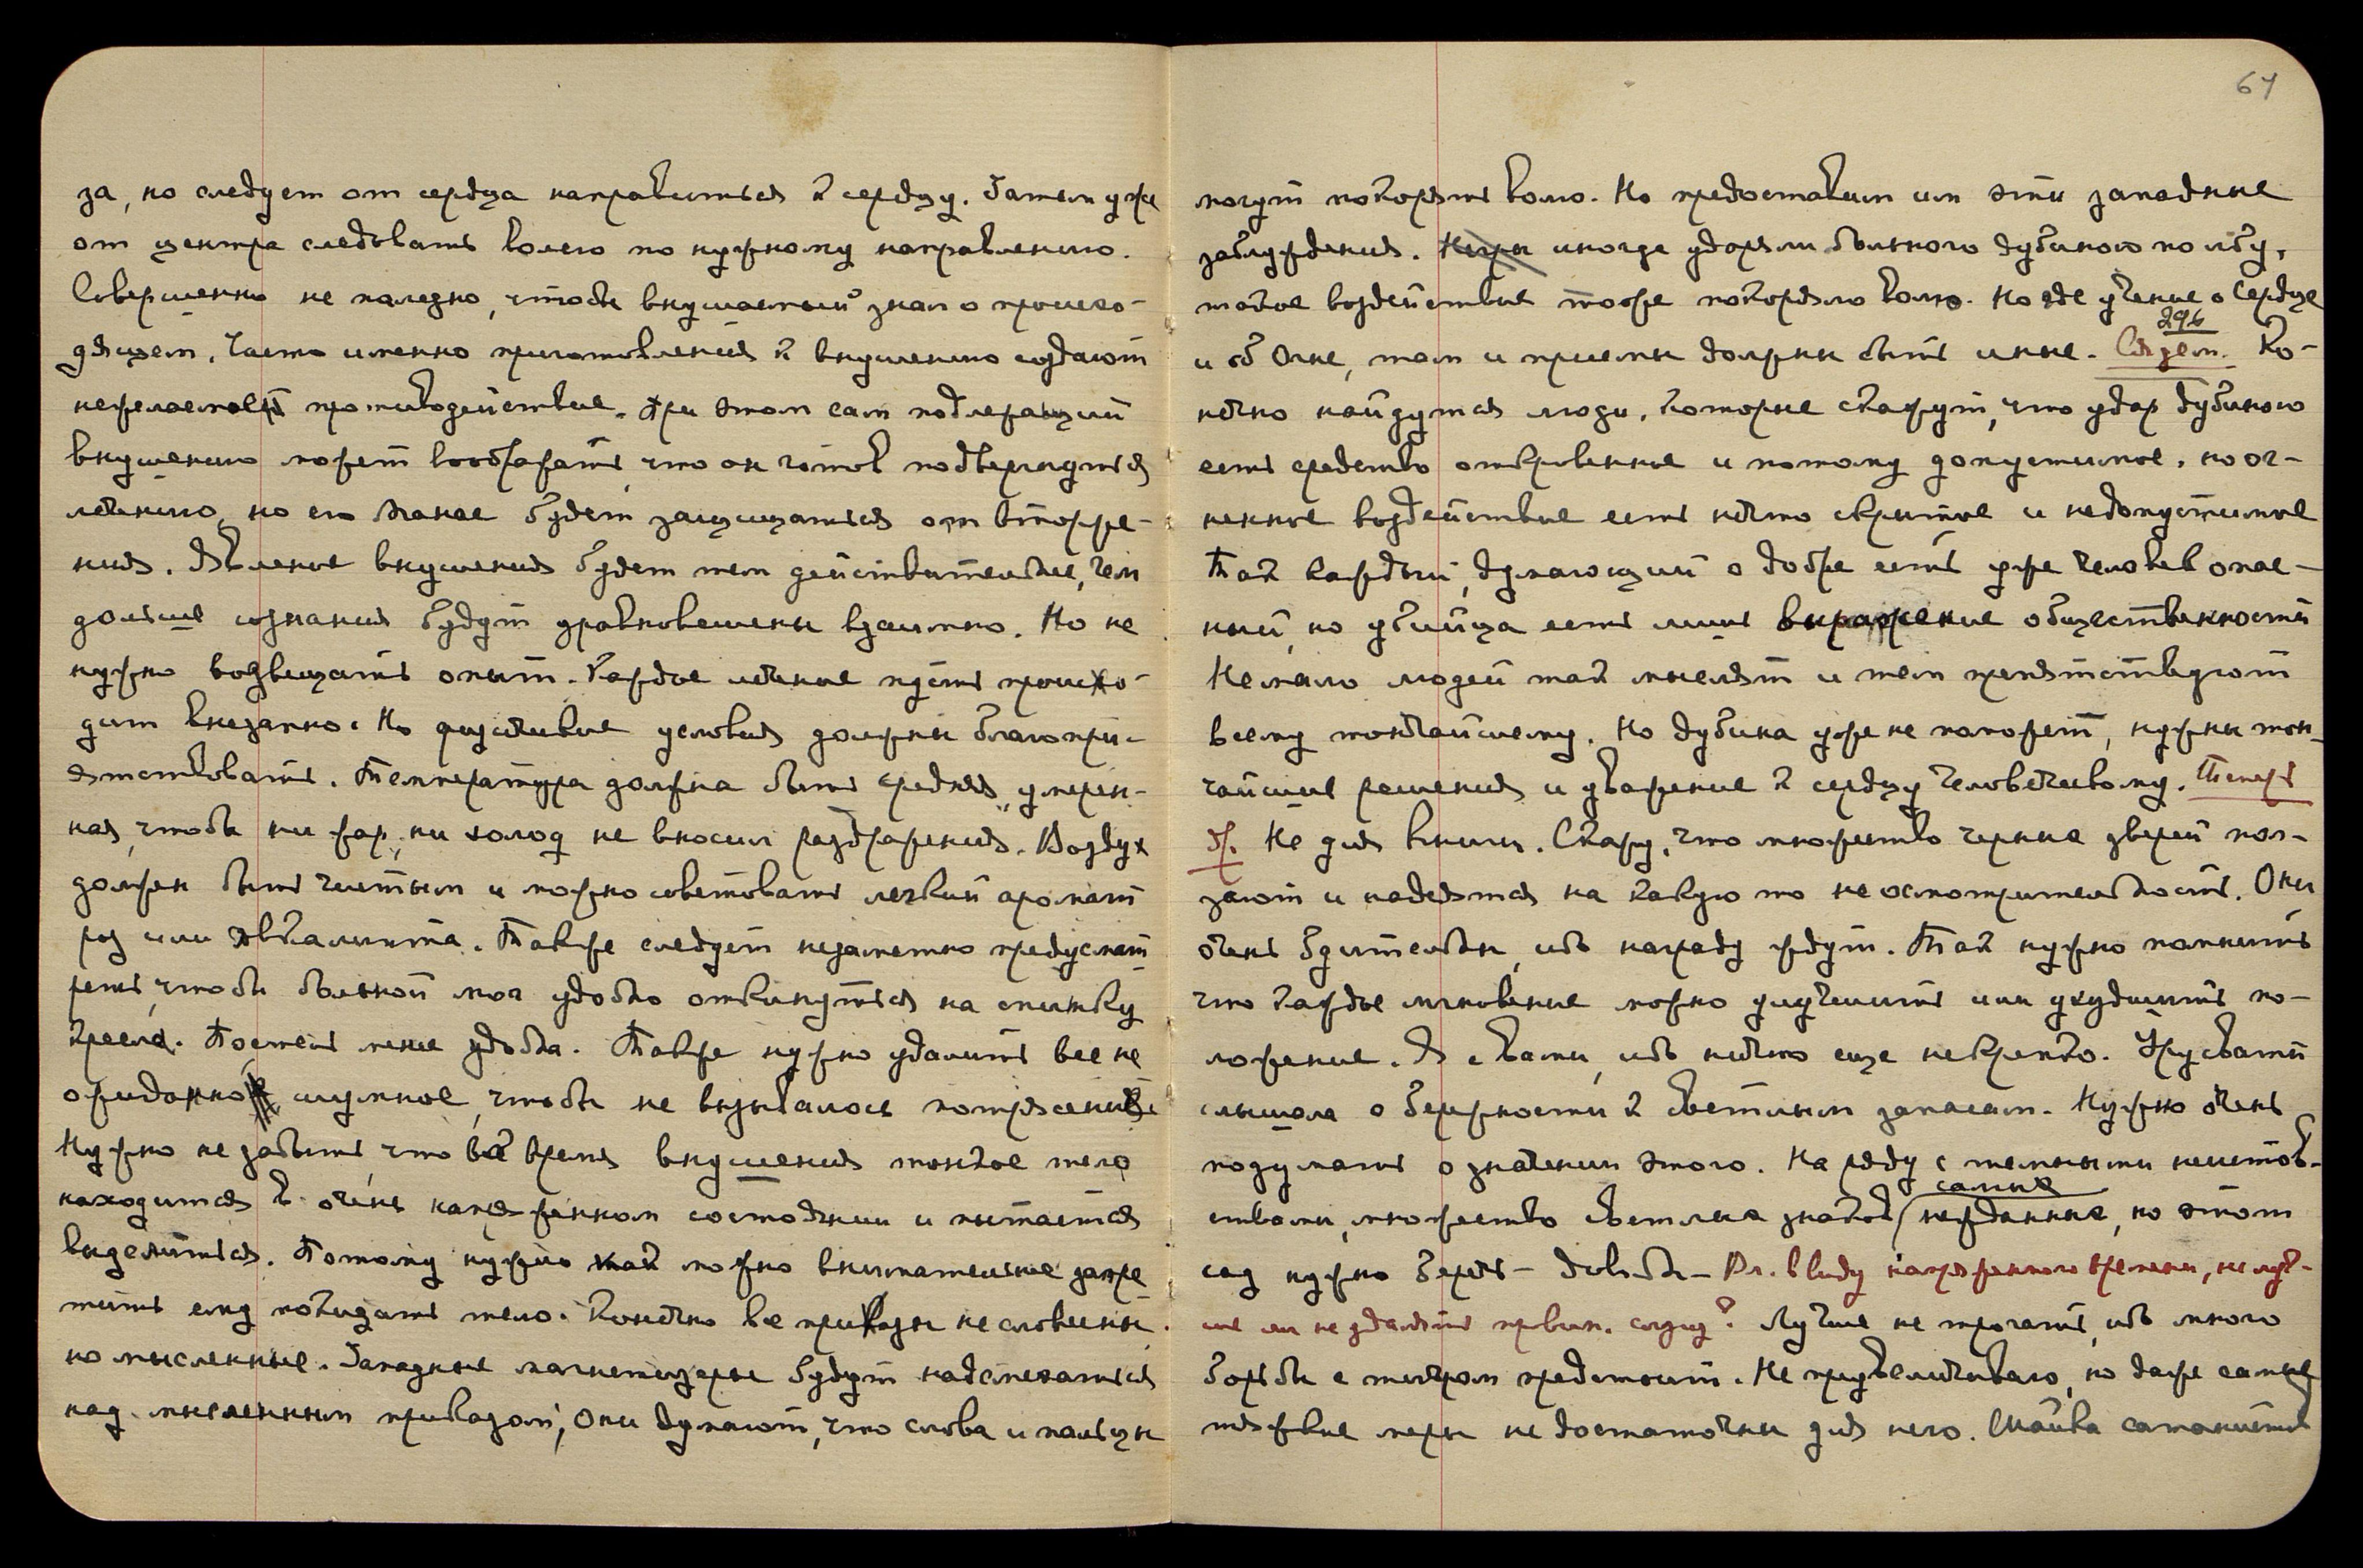 67
за, но следует от сердца направиться к сердцу. Затем уже
от центра следовать волею по нужному направлению.
Совершенно не полезно, чтобы внушаемый знал о происхо-
дящем. Часто именно приготовления к внушению создают
нежелаемое противодействие. При этом сам подлежащий
внушению может воображать, что он готов подвергнуться
лечению, но его Манас будет защищаться от вторже-
ния. Явление внушения будет тем действительнее, чем
дольше сознания будут уравновешены взаимно. Но не
нужно возвещать опыт. Каждое лечение пусть происхо-
дит внезапно. Но физические условия должны благопри-
ятствовать. Температура должна быть средняя, умерен-
ная, чтобы ни жар, ни холод не вносил раздражения. Воздух
должен быть чистым и можно советовать легкий аромат
роз или эвкалипта. Также следует незаметно предусмот
реть, чтобы больной мог удобно откинуться на спинку
кресла. Постель менее удобна. Также нужно удалить все не
ожиданно шумное, чтобы не вызывалось потрясения.
Нужно не забыть, что во время внушения тонкое тело
находится в очень напряженном состоянии и пытается
выделиться. Потому нужно как можно внимательнее запре
тить ему покидать тело. Конечно все приказы не словесны
но мысленные. Западные магнетизеры будут надсмехаться
над мысленным приказом, они думают, что слова и пальцы
могут покорять волю. Но предоставим им эти западные
заблуждения. Негры иногда ударяли больного дубиною по лбу,
такое воздействие тоже покоряло волю. Но где учение о Сердце
296
и об Огне, там и приемы должны быть иные. Сядем. Ко-
нечно найдутся люди, которые скажут, что удар дубиною
есть средство откровенное и потому допустимое, но ог-
ненное воздействие есть нечто скрытое и недопустимое
Так каждый, думающий о добре есть уже человек опас-
ный, но убийца есть лишь выражение общественности
Немало людей так мыслят и тем препятствуют
всему тончайшему. Но дубина уже не поможет, нужны тон-
чайшие решения и уважение к сердцу человеческому. Теперь
Не для книги. Скажу, что множество черных зверей пол-
зают и надеются на какую то неосмотрительность. Они
очень бдительны, ибо награду ждут. Так нужно помнить
что каждое мгновение можно улучшить или ухудшить по-
ложение. Я с вами, ибо нечто еще некрепко. Урусвати
слышала о бережности к светлым запасам. Нужно очень
подумать о значении этого. На ряду с темными неистов-
самые
ствами, множество светлых знаков нежданные, но этот
сад нужно беречь – Довольно – Вл. ввиду напряженного времени, не луч-
ше ли не удалять провин. слугу? Лучше не трогать, ибо много
борьбы с тигром предстоит. Не преувеличиваю, но даже самые
тяжкие меры не достаточны для него. Шайка сатанистов